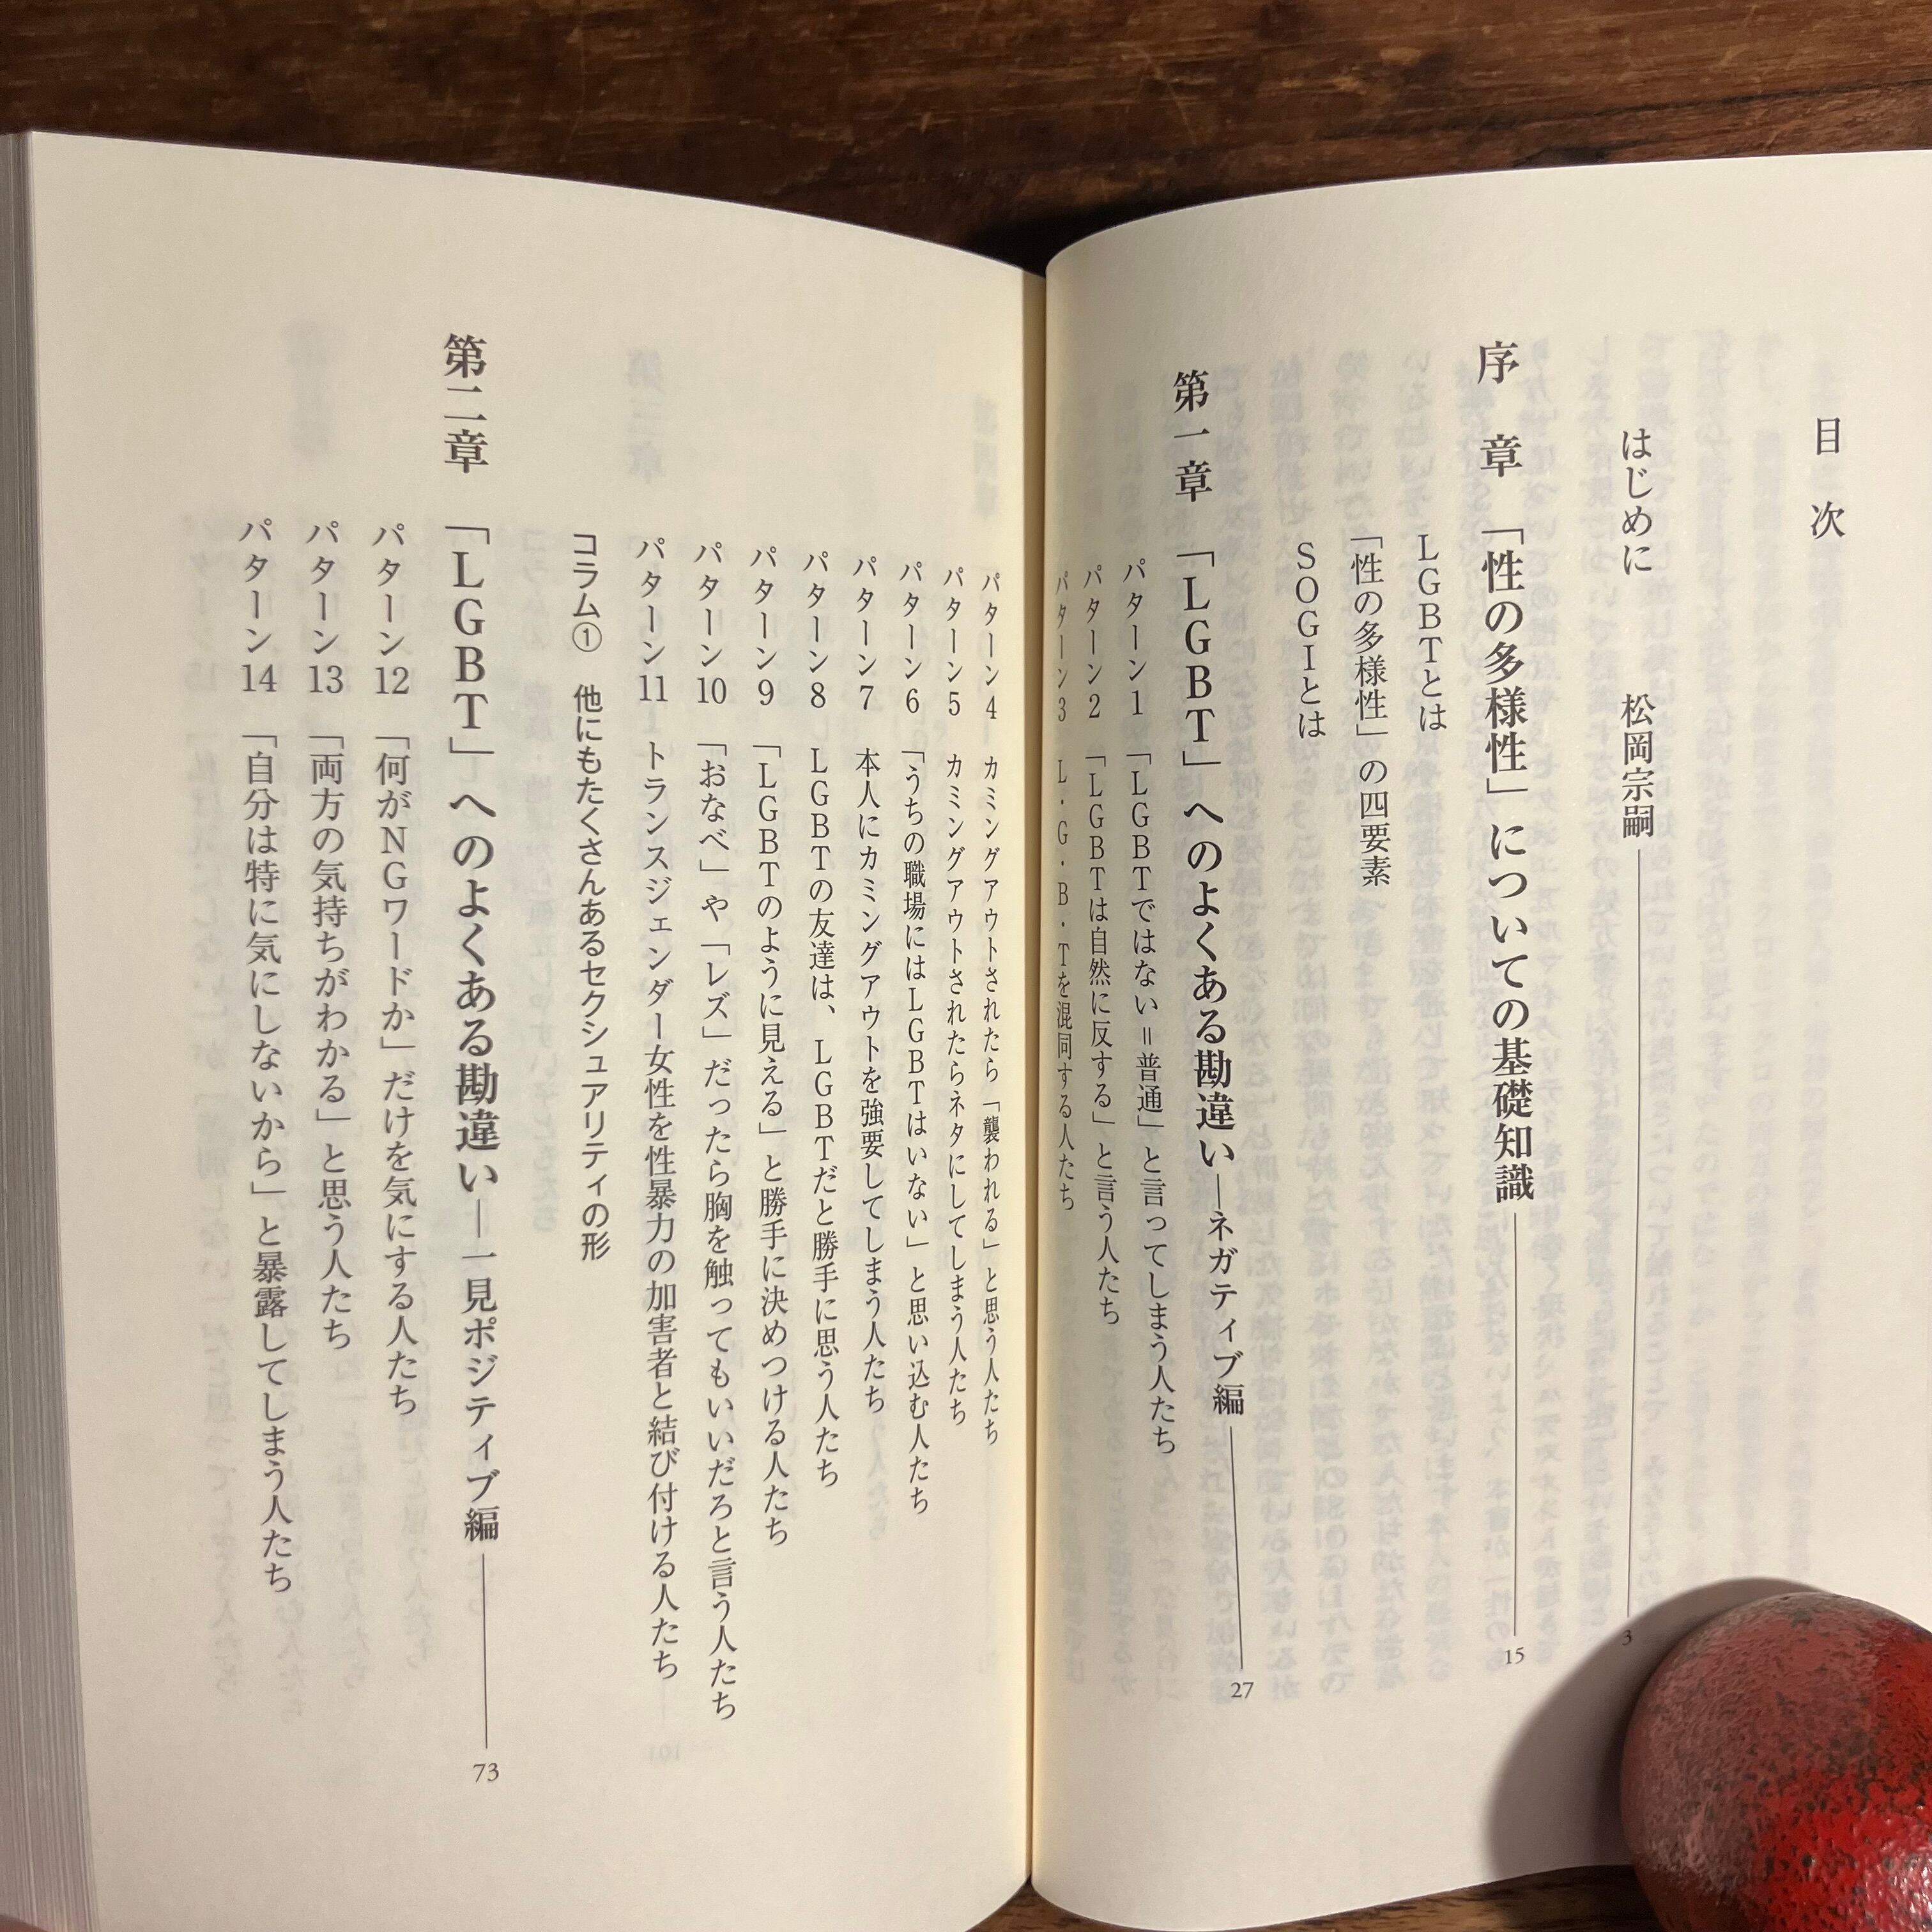 目 次
はじめに 松岡宗嗣 3
序 章 「性の多様性」についての基礎知識 15
LGBTとは
「性の多様性」の四要素
SOGIとは
第一章 「LGBT」へのよくある勘違い―ネガティブ編 27
パターン1 「LGBTではない＝普通」と言ってしまう人たち
パターン2 「LGBTは自然に反する」と言う人たち
パターン3 L・G・B・Tを混同する人たち
パターン4 カミングアウトされたら「襲われる」と思う人たち
パターン5 カミングアウトされたらネタにしてしまう人たち
パターン6 「うちの職場にはLGBTはいない」と思い込む人たち
パターン7 本人にカミングアウトを強要してしまう人たち
パターン8 LGBTの友達は、LGBTだと勝手に思う人たち
パターン9 「LGBTのように見える」と勝手に決めつける人たち
パターン10 「おなべ」や「レズ」だったら胸を触ってもいいだろと言う人たち
パターン11 トランスジェンダー女性を性暴力の加害者と結び付ける人たち
コラム① 他にもたくさんあるセクシュアリティの形
第二章 「LGBT」へのよくある勘違い―一見ポジティブ編 73
パターン12 「何がNGワードか」だけを気にする人たち
パターン13 「両方の気持ちがわかる」と思う人たち
パターン14 「自分は特に気にしないから」と暴露してしまう人たち